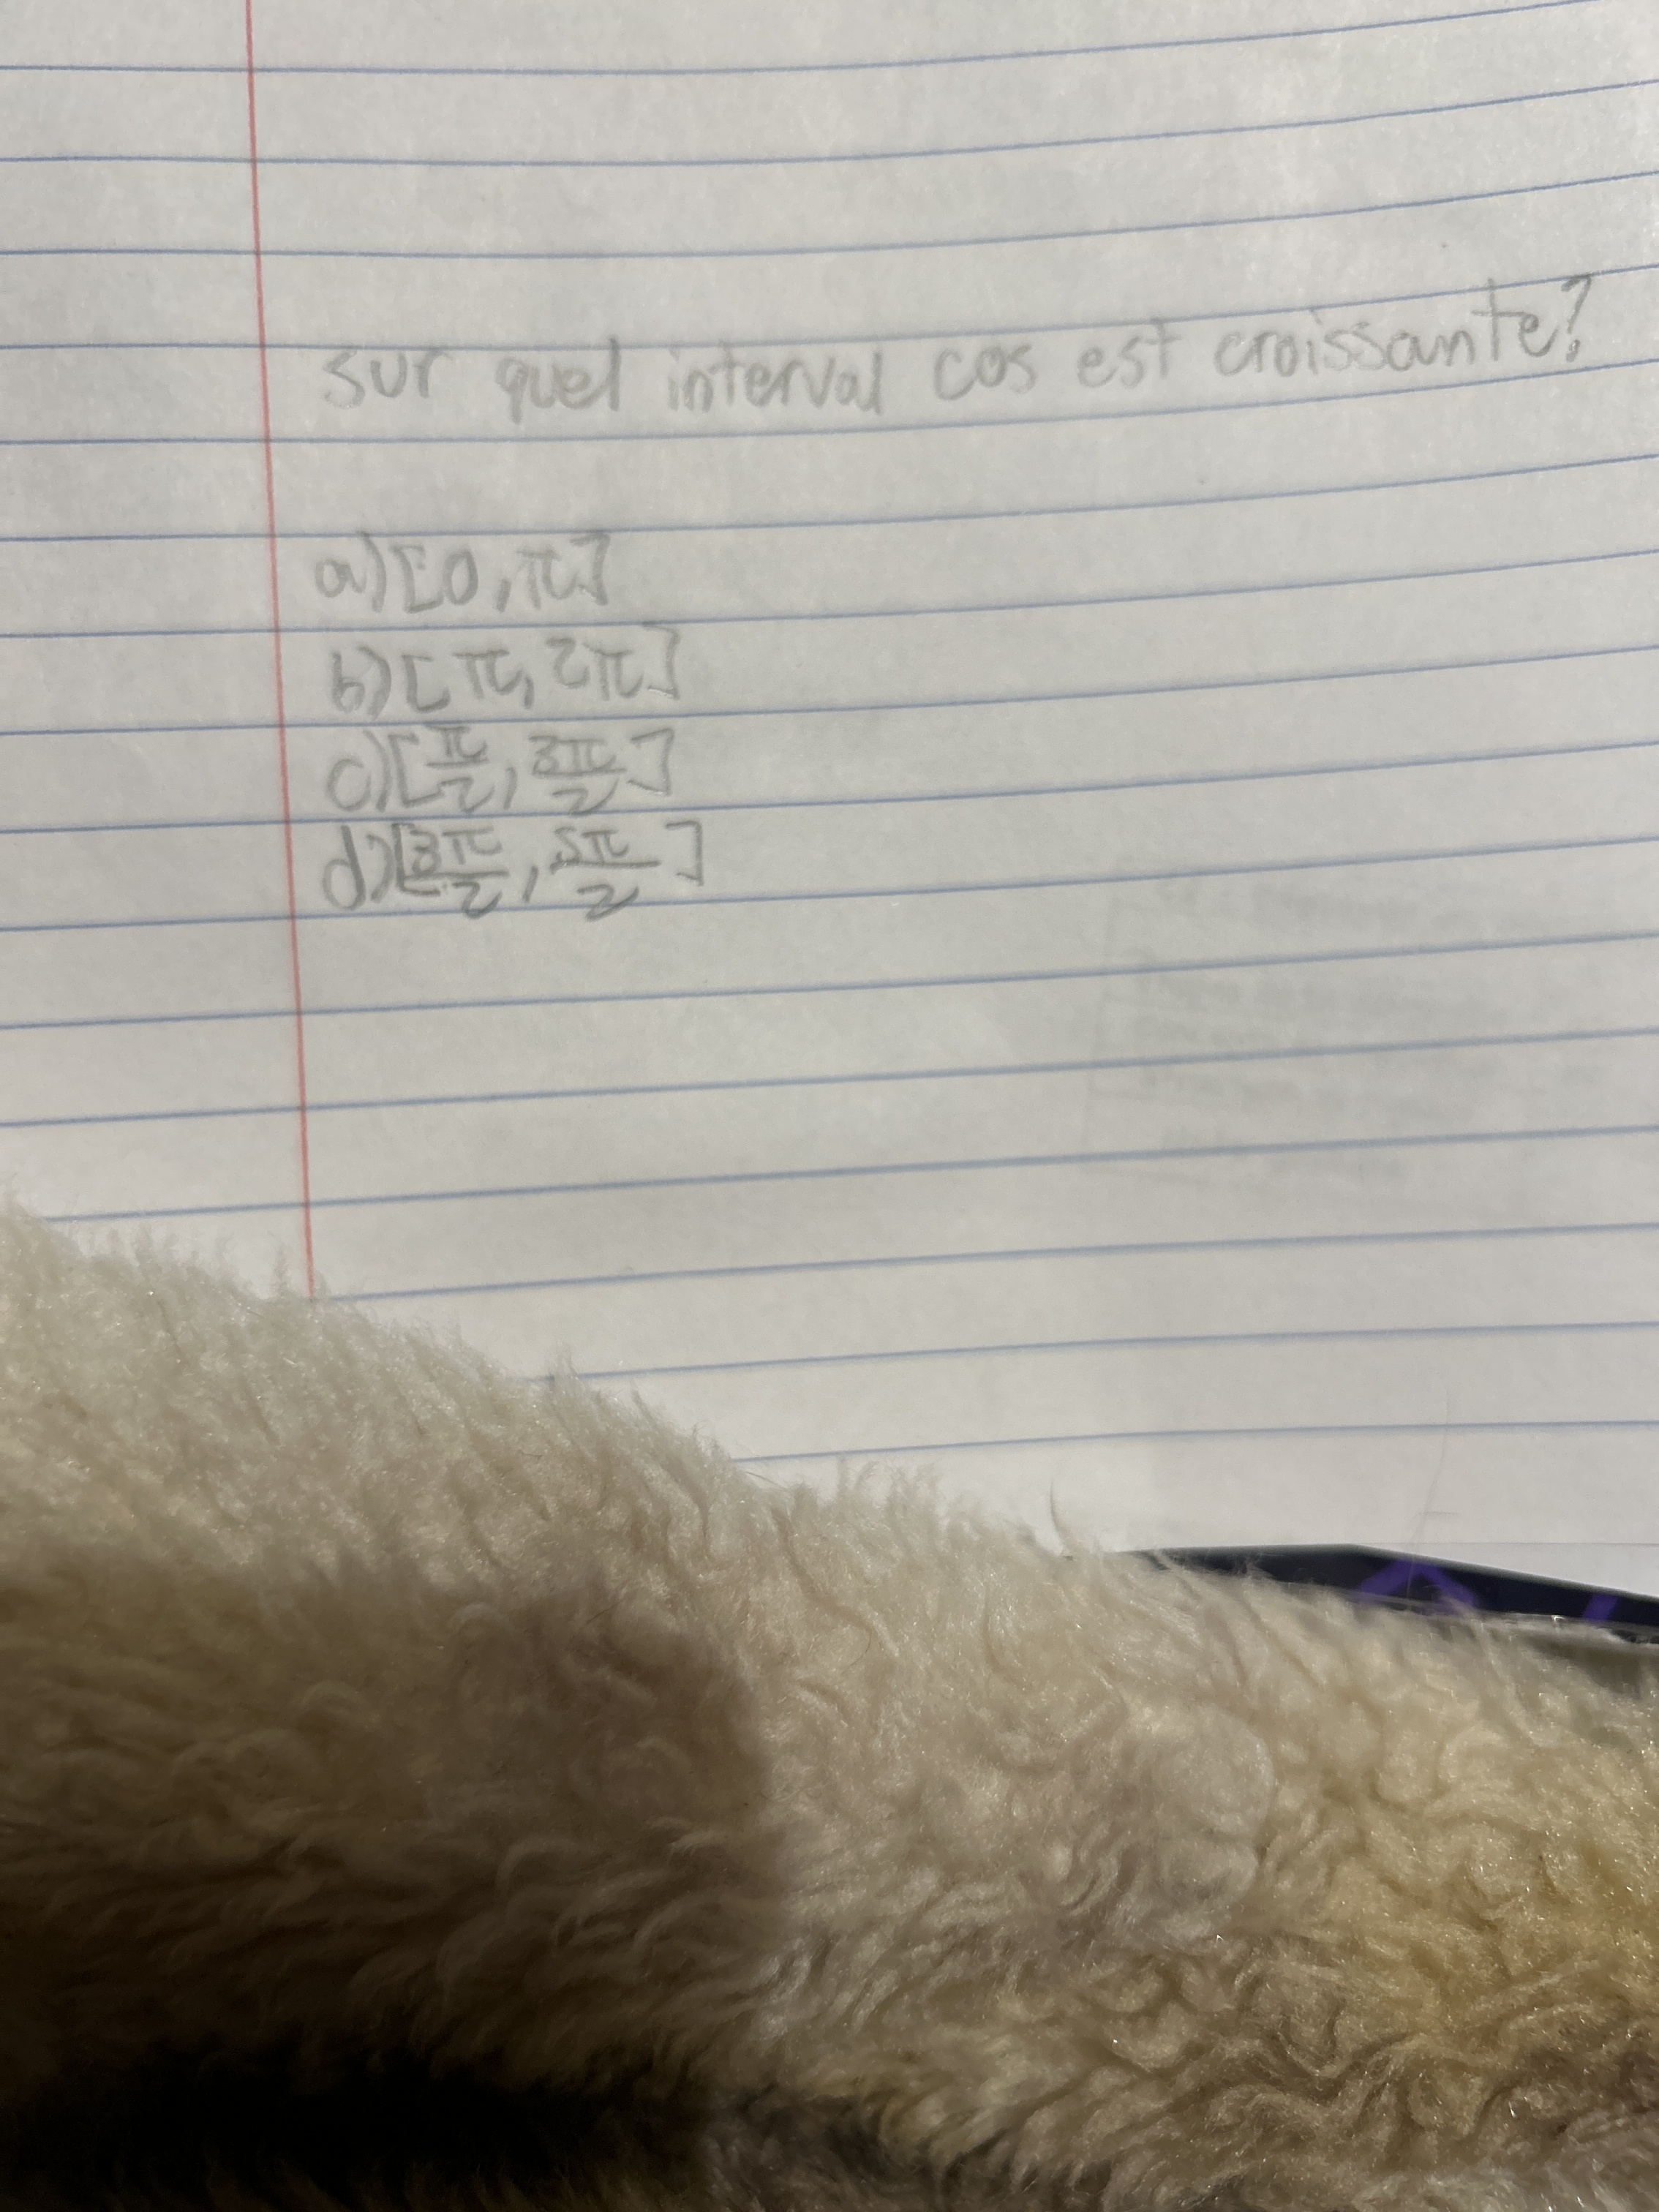 sur quel interval cos est croissante?
a) [0, π]
b) [π, 2π]
c) [π/2, 3π/2]
d) [3π/2, 5π/2]